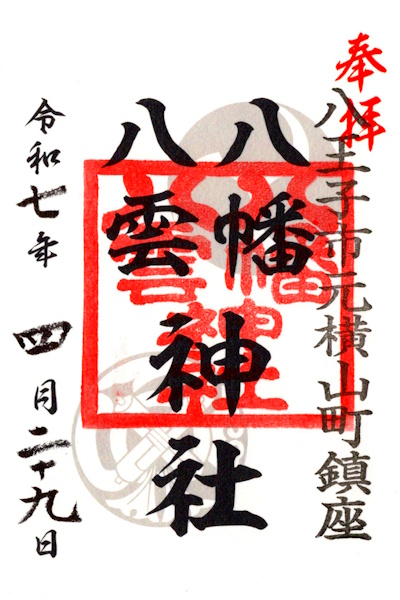 奉拝
八王子市元横山町鎮座
八幡
八雲
神社
令和七年 四月二十九日